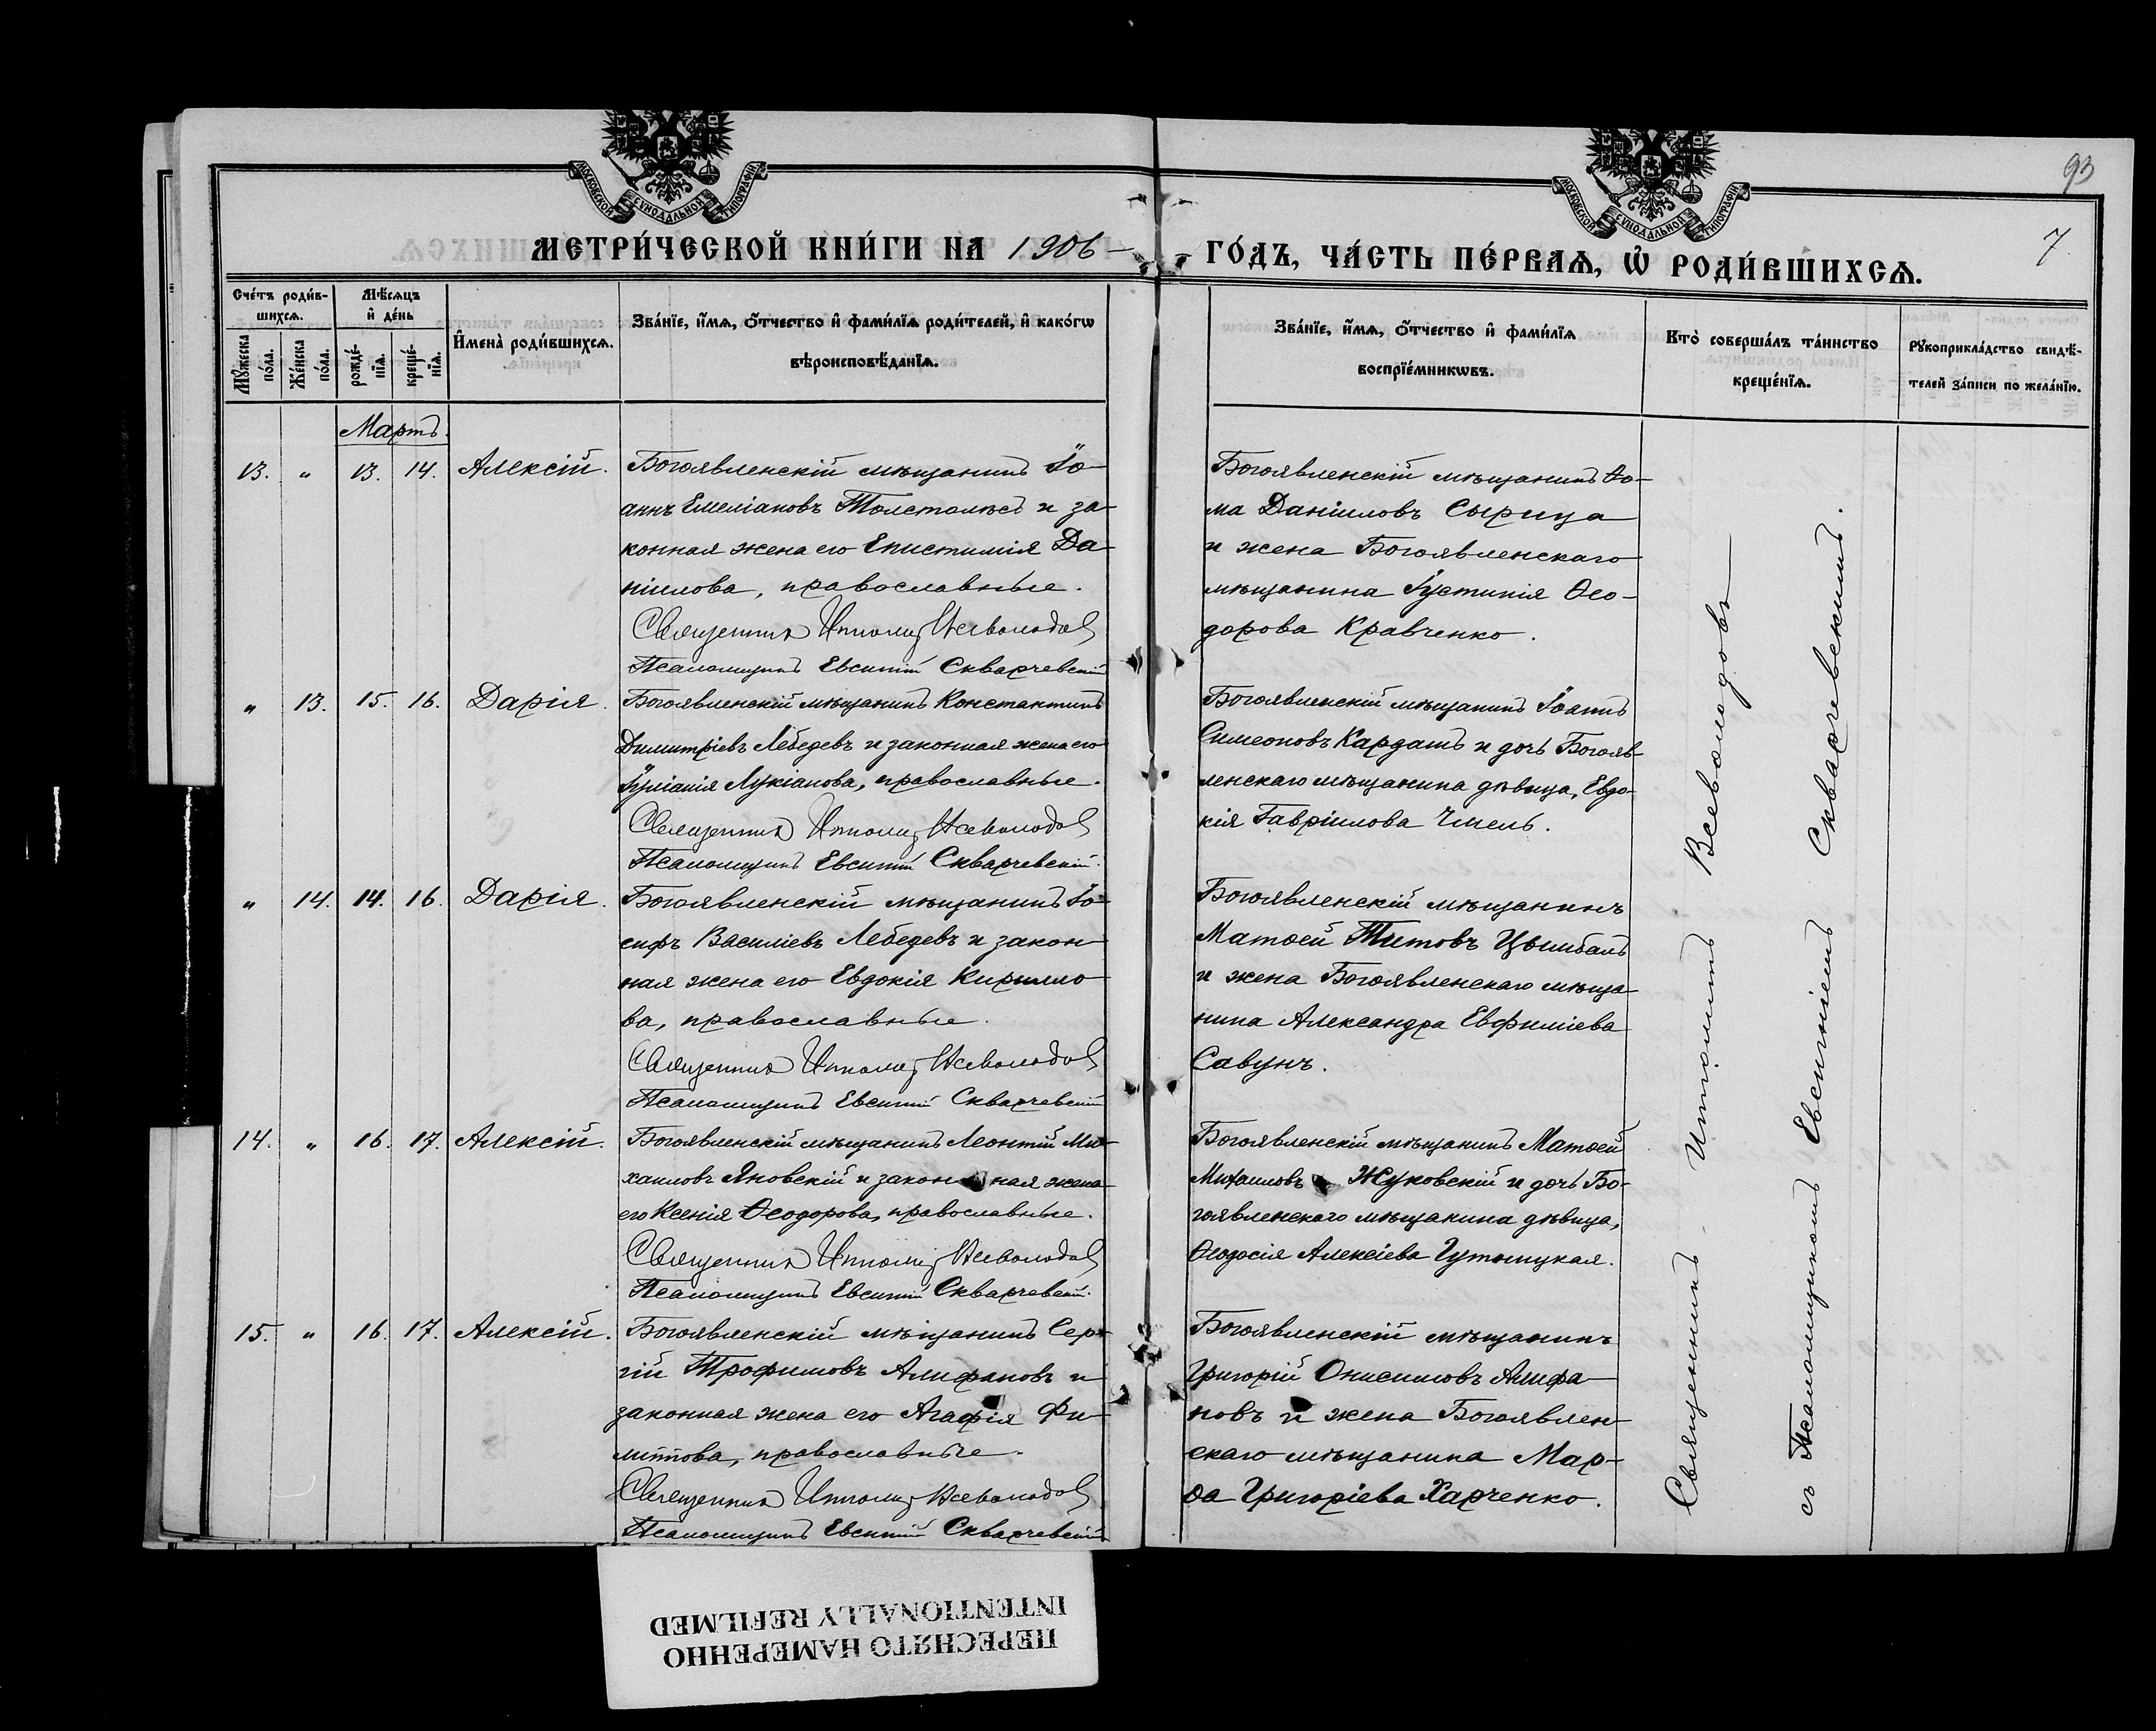 МОСКОВСКОЙ СѴНОДАЛЬНОЙ ТИПОГРАФІИ
МОСКОВСКОЙ СѴНОДАЛЬНОЙ ТИПОГРАФІИ
93
7.
МЕТРИ́ЧЕСКОЙ КНИ́ГИ НА 1906 –
ГО́ДЪ, ЧА́СТЬ ПЕ́РВАѦ, Ѿ РОДИ́ВШИХСѦ.
Сче́тъ роди́в-
шихсѧ.
Му́жеска
по́ла.
Же́нска
по́ла.
Мѣ́сѧцъ
и҆ де́нь
рожде́-
нїѧ.
креще́-
нїѧ.
И҆мена̀ роди́вшихсѧ.
Зва́нїе, и҆́мѧ, о҆́тчество и҆ фами́лїѧ роди́телей, и҆ како́гѡ
вѣроисповѣ́данїѧ.
Зва́нїе, и҆́мѧ, о҆́тчество и҆ фами́лїѧ
воспрїе́мникѡвъ.
Кто̀ соверша́лъ та́инство
креще́нїѧ.
Рꙋкоприкла́дство свидѣ́-
телей за́писи по жела́нїю.
Мартъ.
13. " 13. 14. Алексій.
Богоявленскій мѣщанинъ Іо-
аннъ Емеліановъ Толстолѣсъ и за-
конная жена его Епистимія Да-
ніилова, православные.
Священникъ Ипполитъ Всеволодовъ
Псаломщикъ Евсигній Скварчевскій
Богоявленскій мѣщанинъ Ѳо-
ма Даніиловъ Сырица
и жена Богоявленскаго
мѣщанина Іустинія Ѳео-
дорова Кравченко.
" 13. 15. 16. Дарія.
Богоявленскій мѣщанинъ Константинъ
Димитріевъ Лебедевъ и законная жена его
Іуліанія Лукіанова, православные.
Священникъ Ипполитъ Всеволодовъ
Псаломщикъ Евсигній Скварчевскій.
Богоявленскій мѣщанинъ Іоаннъ
Симеоновъ Кардашъ и дочь Богояв-
ленскаго мѣщанина дѣвица, Евдо-
кія Гавріилова Чмель.
" 14. 14. 16. Дарія.
Богоявленскій мѣщанинъ Іо-
сифъ Василіевъ Лебедевъ и закон-
ная жена его Евдокія Кирилло-
ва, православные.
Священникъ Ипполитъ Всеволодовъ
Псаломщикъ Евсигній Скварчевскій
Богоявленскій мѣщанинъ
Матѳей Титовъ Цымбалъ
и жена Богоявленскаго мѣща-
нина Александра Евфиміева
Савунъ.
14. " 16. 17. Алексій.
Богоявленскій мѣщанинъ Леонтій Ми-
хаиловъ Яновскій и законная жена
его Ксенія Ѳеодорова, православные.
Священникъ Ипполитъ Всеволодовъ
Псаломщикъ Евсигній Скварчевскій.
Богоявленскій мѣщанинъ Матѳей
Михаиловъ Жуковскій и дочь Бо-
гоявленскаго мѣщанина дѣвица,
Ѳеодосія Алексіева Гутницкая.
15. " 16. 17. Алексій.
Богоявленскій мѣщанинъ Сер-
гій Трофимовъ Алифановъ и
законная жена его Агафія Фи-
липпова, православные.
Священникъ Ипполитъ Всеволодовъ
Псаломщикъ Евсигній Скварчевскій
Богоявленскій мѣщанинъ
Григорій Онисимовъ Алифа-
новъ и жена Богоявлен-
скаго мѣщанина Мар-
ѳа Григоріева Харченко.
Священникъ Ипполитъ Всеволодовъ
съ Псаломщикомъ Евсигніемъ Скварчевскимъ.
ПЕРЕСНЯТО НАМЕРЕННО
INTENTIONALLY REFILMED